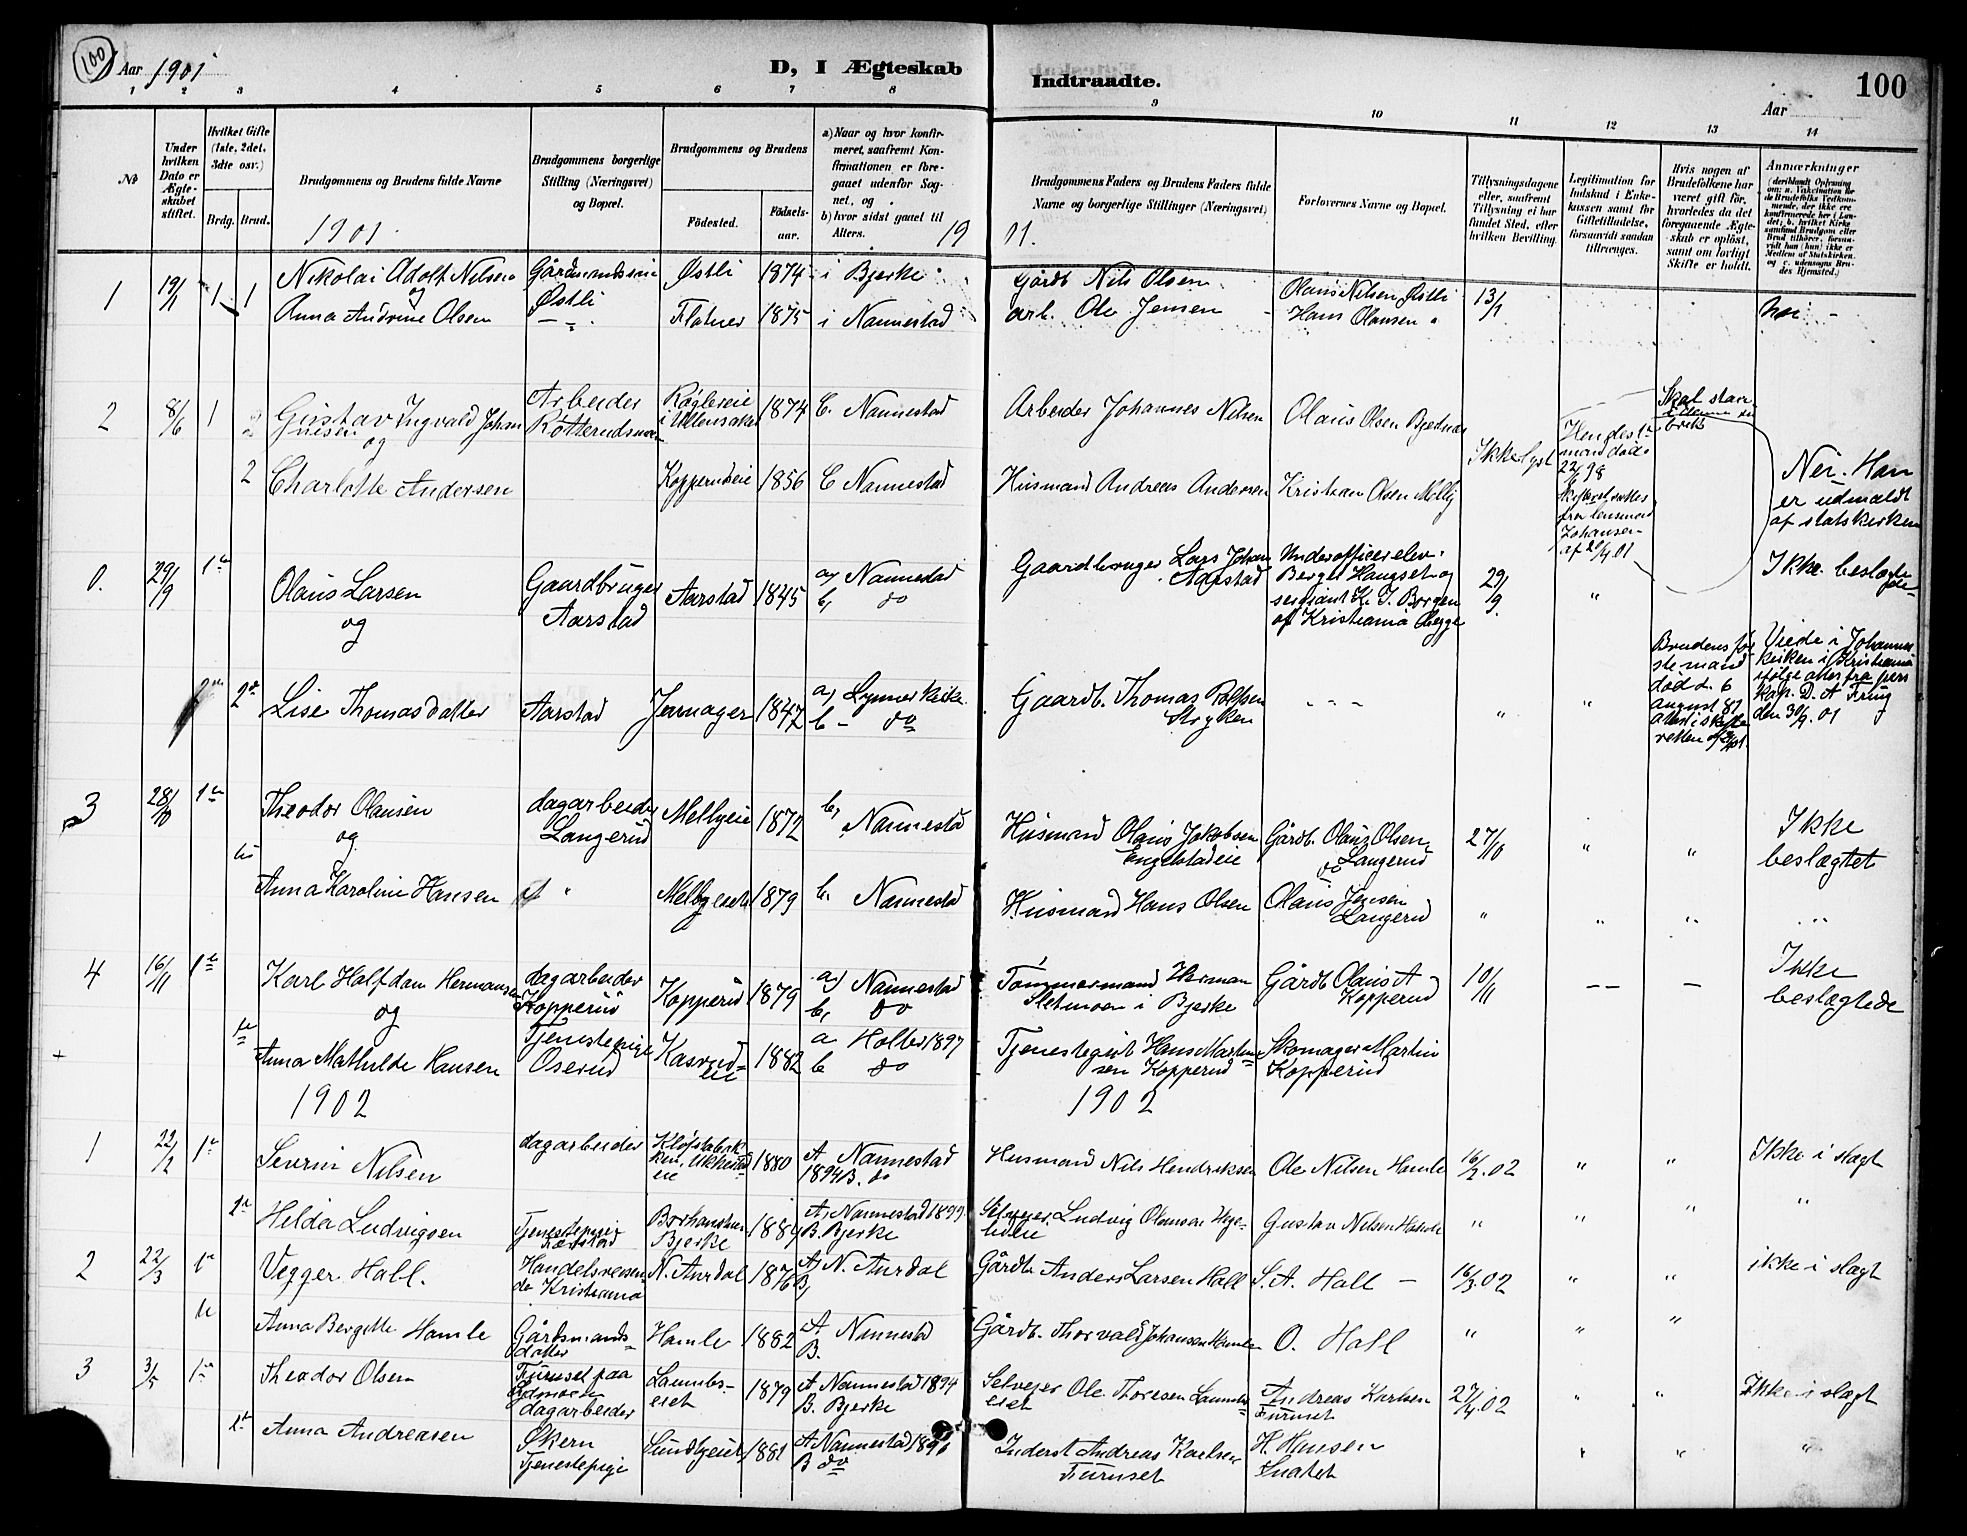 100
Aar 1901
D, I Ægteskab
Indtraadte.
100
Aar
1 2 3 4 5 6 7 8 9 10 11 12 13 14
No
Under hvilken Dato er Ægteskabet stiftet.
Hvilket Gifte (1ste, 2det, 3die osv.)
Brdg. Brud.
Brudgommens og Brudens fulde Navne
Brudgommens borgerlige Stilling (Næringsvei) og Bopæl.
Brudgommens og Brudens
Födested.
Födselsaar.
a) Naar og hvor konfirmeret, saafremt Konfirmationen er foregaaet udenfor Sognet, og
b) hvor sidst gaaet til Alters.
Brudgommens Faders og Brudens Faders fulde Navne og borgerlige Stillinger (Næringsvei)
Forlovernes Navne og Bopæl.
Tillysningsdagene eller, saafremt Tillysning ei har fundet Sted, efter hvilken Bevilling.
Legitimation for Indskud i Enkekassen samt for Giftetilladelse, forsaavidt saadan tiltrænges.
Hvis nogen af Brudefolkene har været gift för, hvorledes da det foregaaende Ægteskab er oplöst, samt om lovligt Skifte er holdt.
Anmærkninger
1901. 19 01.
1 19/1 1 1 Nikolai Adolf Nilsen Østli 1874 i Bjerke Gårdb Nils Olsen Olaus Nilsen Østli 13/1
og
Anna Andrine Olsen Østli Flatner 1875 i Nannestad arb. Ole Jensen Hans Olausen " Nei
2 8/6 1 Gustav Ingvald Johannesen Arbeider 1874 b. Nannestad Arbeider Johannes Nilsen Olaus Olsen
og
2 Charlotte Andersen Kopperudeie 1856 b Nannestad Husmand Andreas Andersen Kristian Olsen Melby Ikke lyst
Hendes 1ste mand død 22/6 98
fra lensmand Johansen af
Nei. Han er udmeldt af statskirken
0. 29/9 1ste Olaus Larsen Gaardbruger Aarstad Aarstad 1845 a) Nannestad b, do Gaardbruger Lars Johan Aarstad
Underofficerelev Berger Haugset og sergiant K. J. Borgen af Kristiania Begge
29/9 " Ikke beslægtede
og
2de Lise Thomasdatter Aarstad Jevnager 1847 a) Lunner kirke b - do Gaardb. Thomas Stryken - - - " "
Brudens første mand død d. 6 august 81
Viede i Johannes kirken i Kristiania ifølge attest fra pers kap. D. A. Frug den 30/9. 01
3 28/10 1ste Theodor Olausen dagarbeider Langerud Mellyeie 1872 b, Nannestad Husmand Olaus Jakobsen Engelstadeie Gårdb. Olaus Olsen Langerud 27/10 " " Ikke beslægtet
og
Anna Karoline Hansen " Melbyeiet 1879 b. Nannestad Husmand Hans Olsen Olaus Jensen Langerud " " " "
4 16/11 1ste Karl Halfdan Hermansen dagarbeider Kopperud Kopperud 1879 a) Nannestad b, do Tømmermand Herman Sletmoen i Bjerke Gårdb Olaus A Kopperud 10/11 - - - Ikke beslægtede
og
Anna Mathilde Hansen Tjenestepige Oserud Kasrudeie 1882 a Holter 1897 b do Tjenestegut Hans Martinsen Kopperud Skomager Martin Kopperud
1902 1902
1 22/2 1ste Severin Nilsen dagarbeider 1880 A Nannestad 1894 B. do Husmand Nils Hendriksen Ole Nilsen Hamle 16/2.02 " " Ikke i slægt
Helda Ludvigsen Tjenestepige Bjerke A) Nannestad 1899 B. Bjerke Selveier Ludvig Olausen Gustav Nilsen Hamle " " " "
2 22/3 1ste Vegger Hall. Handelsreisende Kristiania N. Aurdal 1876 A) N. Aurdal B) Gårdb Anders Larsen Hall S. A. Hall 16/3.02 " " ikke i slægt
Anna Bergitte Hamle Gårdmandsdatter Hamle 1882 A Nannestad B. Gårdb. Thorvald Johansen Hamle O. Hall " " "
3 3/5 1ste Theodor Olsen Furuset paa dagarbeider 1879 A Nannestad 1894 B. Bjerke Selveier Ole Thoresen Andreas Karlsen Furuset 27/4.02 " " Ikke i slægt
Anna Andreasen Økern Tjenestepige Sundbyeiet 1881 A Nannestad B do Inderst Andreas Karlsen Furuset H. Hansen " " "